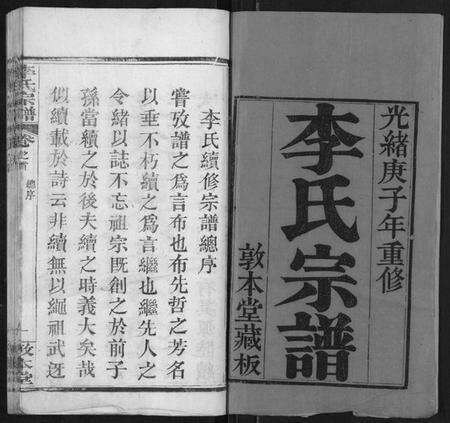 光緒庚子年重修
李氏宗譜
敦本堂藏板
李氏續修宗譜總序
嘗攷譜之爲言布也布先哲之芳名
以垂不朽續之爲言繼也繼先人之
令緒以誌不忘祖宗旣創之於前子
孫當續之於後夫續之時義大矣哉
似續載於詩云非續無以繩祖武迓
李氏宗譜
卷之首
總序
敦本堂